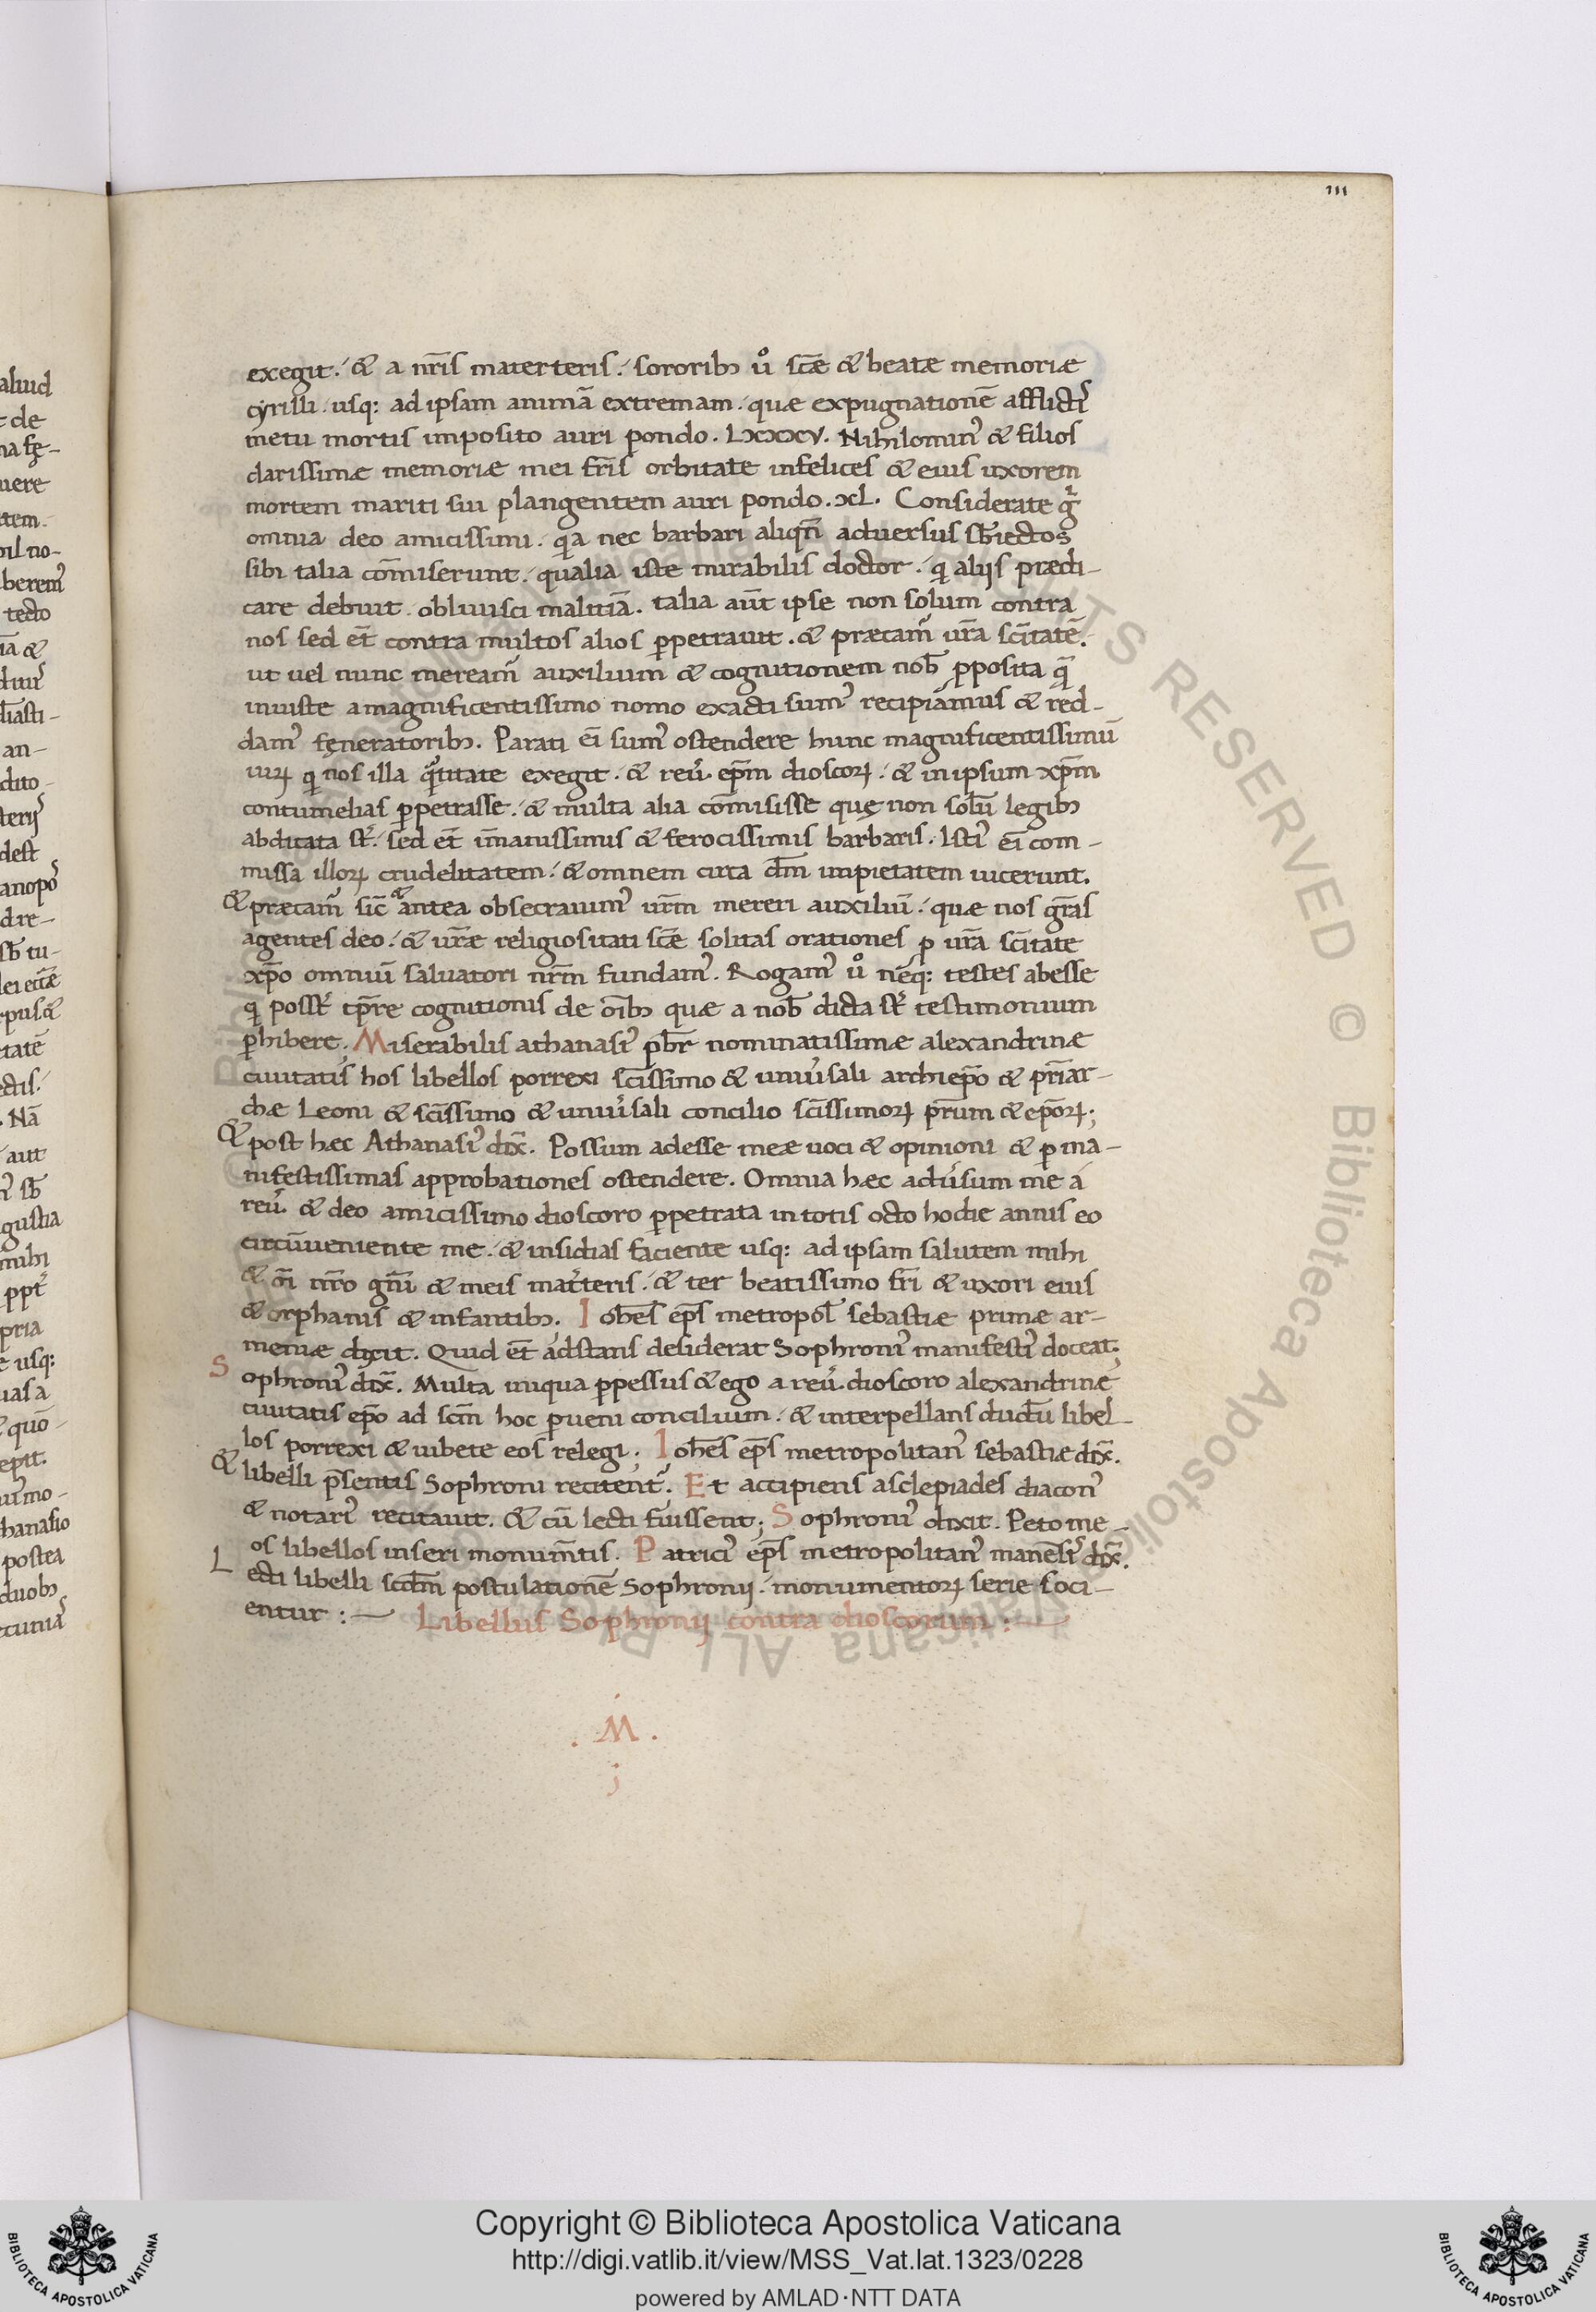 111
exegit. & a nr̄is materteris. sororib; ů sc̄æ & beatæ memoriæ
cyrilli. usq: ad ipsam animā extremam. quæ expugnationē afflicti᾽
metu mortis imposito auri pondo. Lxxxv. Nihilomin᾽ & filios
clarissimæ memoriæ mei fr̄is orbitate infelices & eius uxorem
mortem mariti sui plangentem auri pondo. xl. Considerate g̊
omnia deo amicissimi. q̊a nec barbari aliqn̄ aduersus sb̄iectos
sibi talia cōmiserunt. qualia iste mirabilis doctor. qi aliis prædi-
care debuit obliuisci malitiā. talia aūt ipse non solum contra
nos sed et̄ contra multos alios ꝑpetrauit. & præcam᾽ ur̄a sc̄itatē.
ut uel nunc meream᾽ auxilium & cognitionem nob̄ ꝓposita q̄
iniuste a magnificentissimo nomo exacti sum᾽ recipiamus & red-
dam᾽ fęneratorib;. Parati ei sum᾽ ostendere hunc magnificentissimū
uiꝝ qi nos illa q̄titate exegit. & reu᾽. ep̄m dioscoꝝ. & in ipsum xp̄m
contumelias ꝑpetrasse. & multa alia cōmisisse quę non solū legib;
abdicata st᾽. sed et̄ im̄anissimis & ferocissimis barbaris. Isti᾽ ei̅ com-
missa illoꝝ crudelitatem. & omnem circa dm̄ impietatem uicerunt.
& præcam᾽ sic̄ & antea obsecrauim᾽ ur̄m mereri auxiliū. quæ nos gr̄as
agentes deo. & ur̄æ religiositati sc̄æ solitas orationes ꝓ ur̄a sc̄itate
xp̄o omniū saluatori nr̄m fundam᾽. Rogam᾽ ů neq: testes abesse
qi poss᾽ tp̄re cognitionis de oīb; quæ a nob̄ dicta st᾽ testimonium
ꝑhibere. Miserabilis athanasi᾽ pb̄r nominatissimæ alexandrinæ
ciuitatis hos libellos porrexi sc̄issimo & uniu᾽sali archiep̄o & pr̄iar-
chæ Leoni & sc̄issimo & uniu᾽sali concilio sc̄issimoꝝ pr̄um & ep̄oꝝ;
& post hæc Athanasi᾽ dix̄. Possum adesse meæ uoci & opinioni & ꝑ ma-
nifestissimas approbationes ostendere. Omnia hæc adu᾽sum me a
reu᾽. & deo amicissimo dioscoro ꝑpetrata in totis octo hodie annis eo
circūueniente me. & insidias faciente usq: ad ipsam salutem mihi
& oi̅ nr̄o gn̄i & meis mat᾽teris. & ter beatissimo fr̄i & uxori eius
& orphanis & infantib;. Ioh̄es ep̄s metropol̄ sebastiæ primæ ar-
meniæ dicit. Quid et̄ adstans desiderat Sophroni᾽ manifesti᾽ doceat;
Sophroni᾽ dix̄. Multa iniqua ꝑpessus & ego a reu᾽. dioscoro alexandrinæ
ciuitatis ep̄o ad sc̄m hoc ꝑueni concilium. & interpellans dudū libel-
los porrexi & iubete eos relegi; Ioh̄es ep̄s metropolitan᾽ sebastiæ dix̄.
& libelli p̄sentis Sophroni recitent᾽. Et accipiens asclepiades diacon᾽
& notari᾽ recitauit. & cū lecti fuissent; Sophroni᾽ dixit. Peto me-
os libellos inseri monum̄tis. Patrici᾽ ep̄s metropolitan᾽ dix̄.
Lecti libelli scd̄m postulationē Sophronij. monumentoꝝ serie soci-
entur :— Libellus Sophronij contra dioscorum :—
. M .
;
aliud
t de
na fę-
uere
tem.
nil no-
tecto
an-
dito-
dest
dre-
. Nā
aut
gustia
mihi
pria
e usq:
uas a
quō-
epit.
hanasio
postea
duob;
Copyright © Biblioteca Apostolica Vaticana
http://digi.vatlib.it/view/MSS_Vat.lat.1323/0228
powered by AMLAD·NTT DATA
BIBLIOTECA APOSTOLICA VATICANA
BIBLIOTECA APOSTOLICA VATICANA